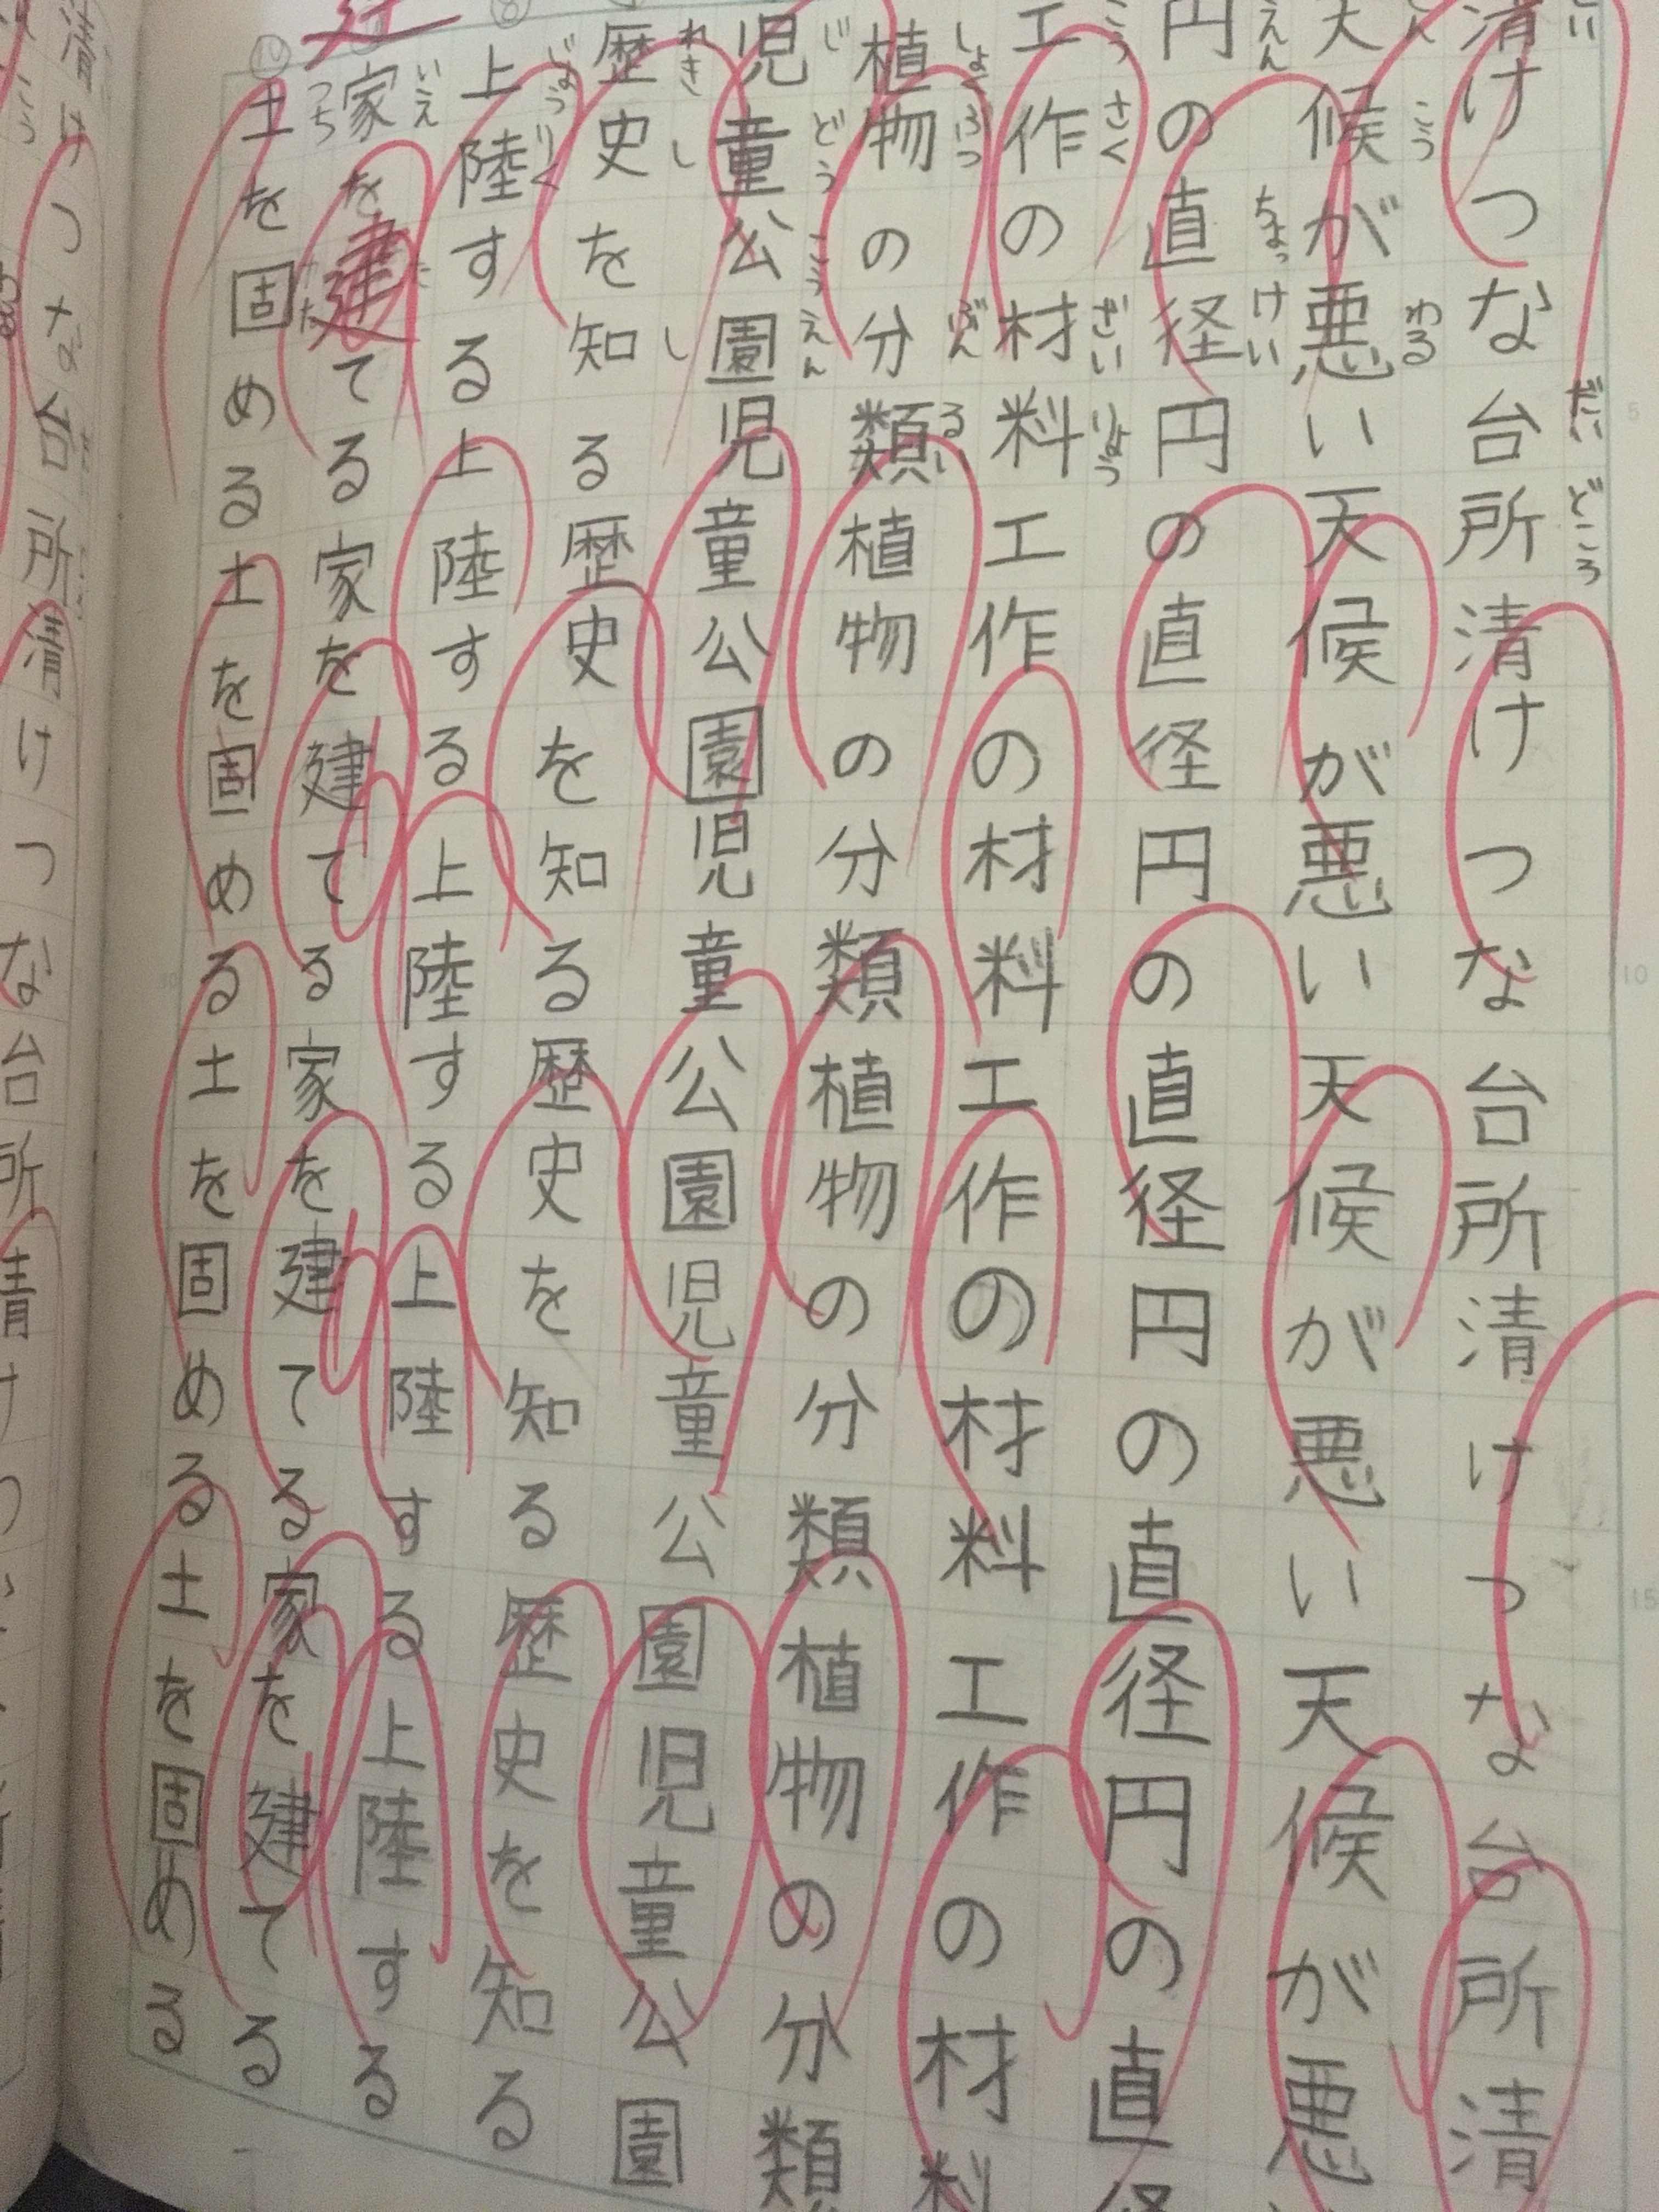 清けつな台所清けつな台所清けつな台所清
天候が悪い天候が悪い天候が悪い天候が悪
円の直径円の直径円の直径円の直径円の直径
工作の材料工作の材料工作の材料工作の材料
植物の分類植物の分類植物の分類植物の分類
児童公園児童公園児童公園児童公園児童公園
歴史を知る歴史を知る歴史を知る歴史を知る
上陸する上陸する上陸する上陸する上陸する
家を建てる家を建てる家を建てる家を建てる
土を固める土を固める土を固める土を固める
清けつな台所清けつな台所清けつ